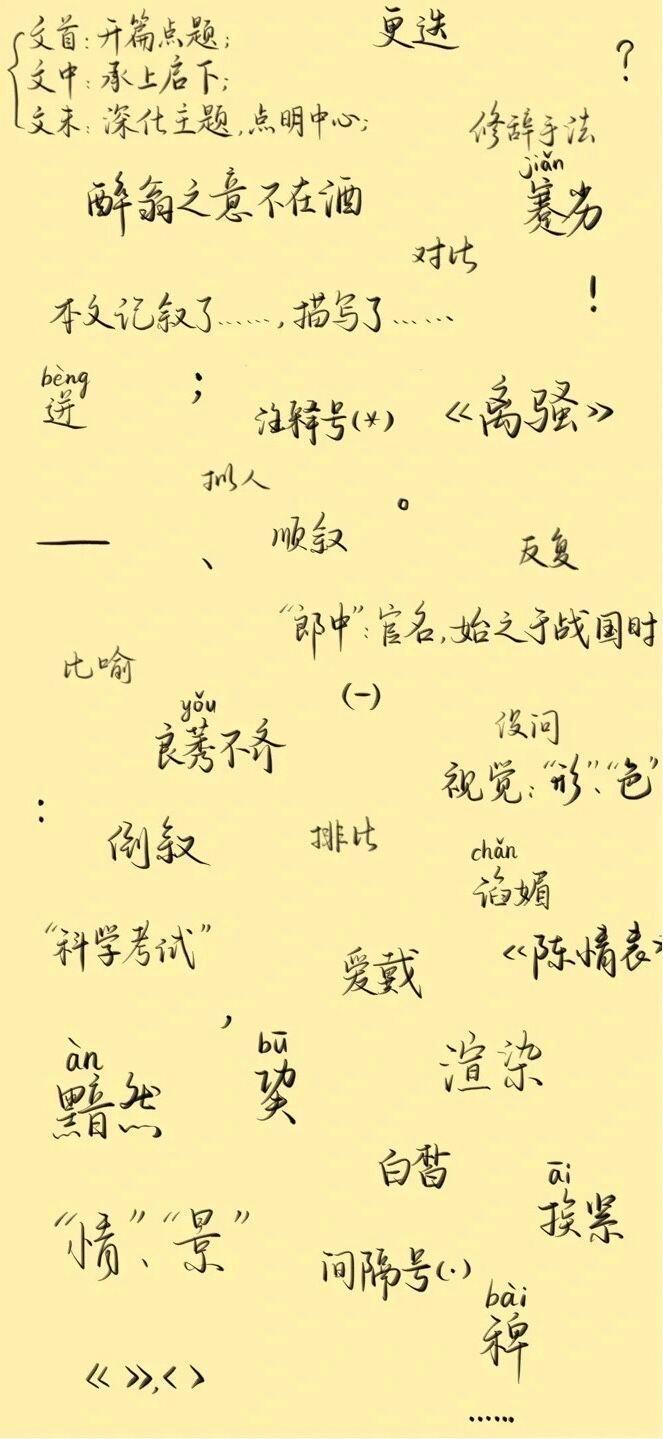 文首：开篇点题；
更迭
文中：承上启下；
？
文末：深化主题，点明中心；
修辞手法
jiǎn
醉翁之意不在酒
蹇劣
对比
！
本文记叙了……，描写了……
bèng
迸
；
注释号(*)
《离骚》
拟人
。
——
顺叙
、
反复
“郎中”：官名，始之于战国时
比喻
(一)
yǒu
良莠不齐
设问
视觉：“形”、“色”
：
倒叙
排比
chǎn
谄媚
“科学考试”
爱戴
《陈情表》
，
àn
黯然
bū
渲染
白皙
āi
挨紧
“情”、“景”
间隔号(·)
bài
稗
《 》，〈 〉
……